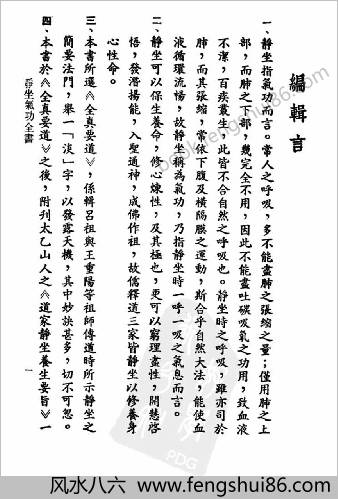 編輯言
一、靜坐指氣功而言。常人之呼吸，多不能盡肺之張縮之量；僅用肺之上
部，而肺之下部，幾完全不用，因此不能盡吐碳吸氧之功用，致血液
不潔，百疾叢生，此皆不合自然之呼吸也。靜坐時之呼吸，雖亦司於
肺，而其張縮，常依下腹及橫隔膜之運動，斯合乎自然大法，能使血
液循環流暢，故靜坐稱為氣功，乃指靜坐時一呼一吸之氣息而言。
二、靜坐可以保生養命，修心煉性，及其極也，更可以窮理盡性，開慧啓
悟，發潛揚能，入聖通神，成佛作祖，故儒釋道三家皆靜坐以修養身
心性命。
三、本書所選《全真要道》，係輯呂祖與王重陽等祖師傳道時所示靜坐之
簡要法門，舉一「淡」字，以發露天機，其中妙訣甚多，切不可忽。
四、本書於《全真要道》之後，附刊太乙山人之《道家靜坐養生要旨》一
靜坐氣功全書
一
PDG
www.fengshui86.com
风水八六 fengshui86.com